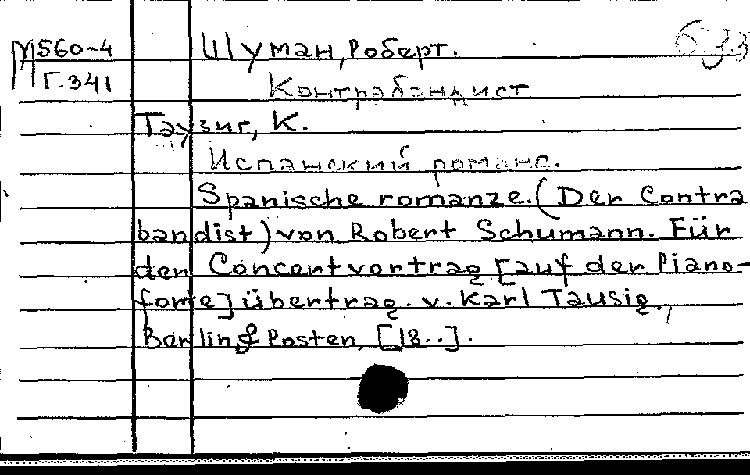 М560-4
Г.341
Шуман, Роберт.
633
Контрабандист
Таузиг, К.
Испанский романс.
Spanische romanze. (Der Contra
bandist) von Robert Schumann. Für
den Concertvortrag [auf der Piano-
forte] übertrag. v. Karl Tausig.
Berlin & Posten, [18..].